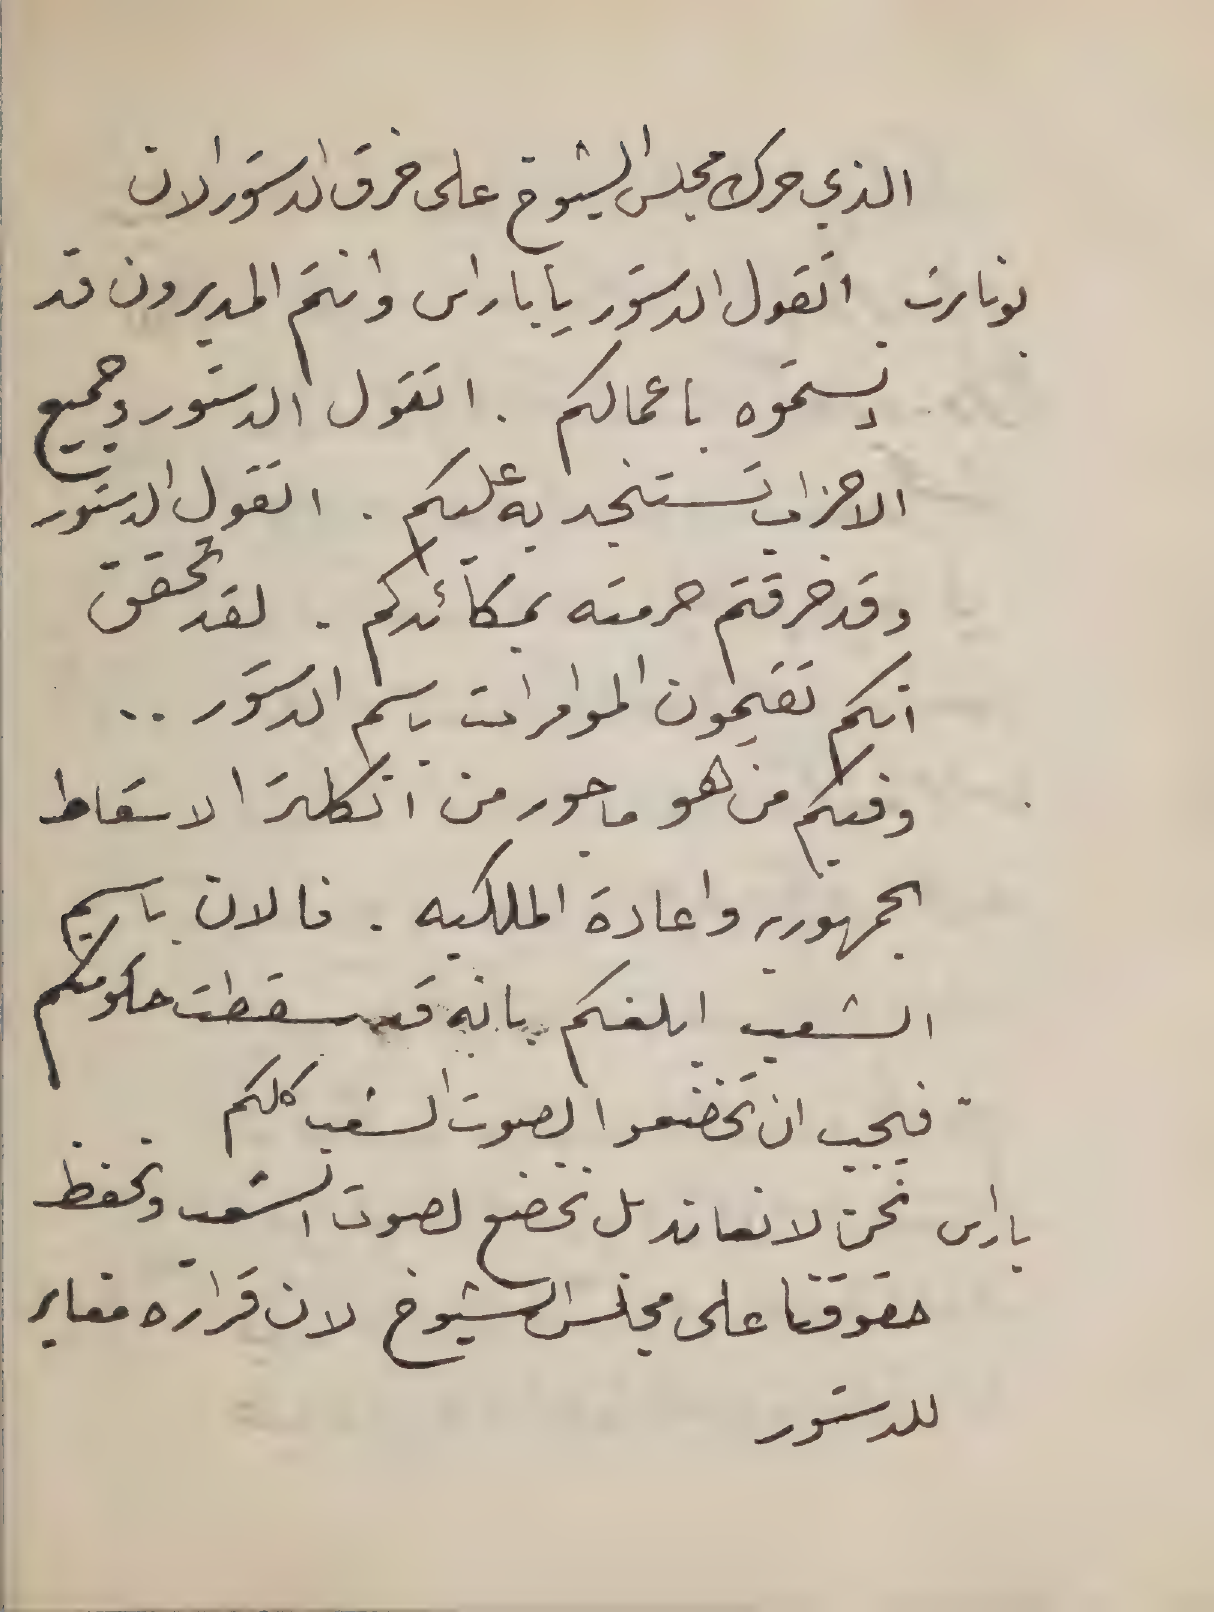 الذي حرك مجلس الشيوخ على خرق الدستور الان
بونابرت اتقول الدستور ياباراس وانتم المديرون قد
باعمالكم . اتقول الدستور وجميع
الاحزاب تستنجد به عليكم . اتقول الدستور
وقد خرقتم حرمته بمكائدكم . لقد تحقق
انكم تقيمون الموامرات باسم الدستور ..
وفيكم من هو ماجور من انكلترا لاسقاط
الجمهوريه واعادة الملكيه . فالان باسم
الشعب ابلغكم بانه قد سقطت حكومتكم
فيجب ان تخضعوا لصوت الشعب كلكم
باراس نحن لا نعاند بل نخضع لصوت الشعب ونحفظ
حقوقنا على مجلس الشيوخ لان قراره مغاير
للدستور